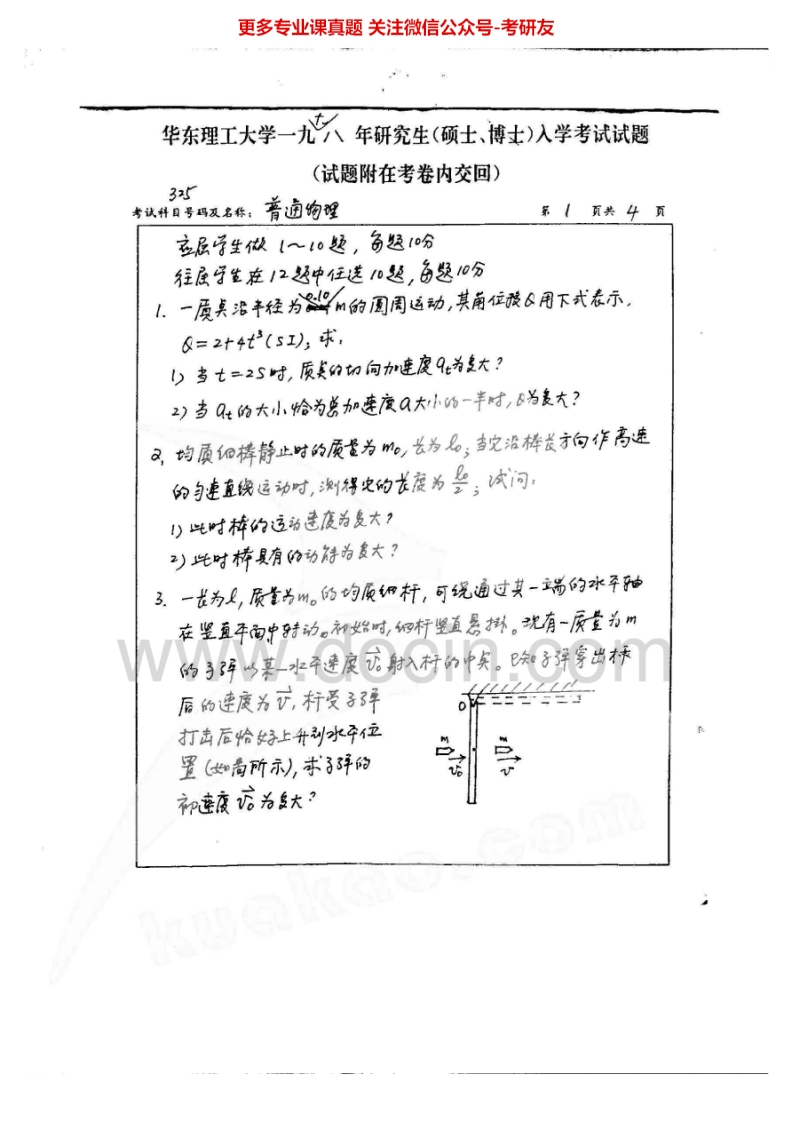 更多专业课真题 关注微信公众号-考研友
华东理工大学一九八 年研究生(硕士、博士)入学考试试题
(试题附在考卷内交回)
325
考试科目号码及名称: 普通物理 第 1 页共 4 页
应届学生做 1~10题, 每题10分
往届学生在12题中任选10题, 每题10分
1. 一质点沿半径为0.10m的圆周运动,其角位移θ用下式表示,
θ=2+4t³(SI); 求:
1) 当t=2S时, 质点的切向加速度at为多大?
2) 当at的大小恰为总加速度a大小的一半时,θ为多大?
2. 均质细棒静止时的质量为m₀, 长为l₀; 当它沿棒长方向作高速
的匀速直线运动时, 测得它的长度为 l₀/2; 试问:
1) 此时棒的运动速度为多大?
2) 此时棒具有的动能为多大?
3. 一长为l, 质量为m₀的均质细杆, 可绕通过其一端的水平轴
在竖直平面内转动。初始时,细杆竖直悬挂。现有一质量为m
的子弹以某一水平速度v⃗₀射入杆的中央。已知子弹穿出杆
后的速度为v⃗, 杆受子弹
打击后恰好上升到水平位
置(如图所示), 求子弹的
初速度v⃗₀为多大?
O
m m
v⃗₀ v⃗
www.docin.com
kuakao.com